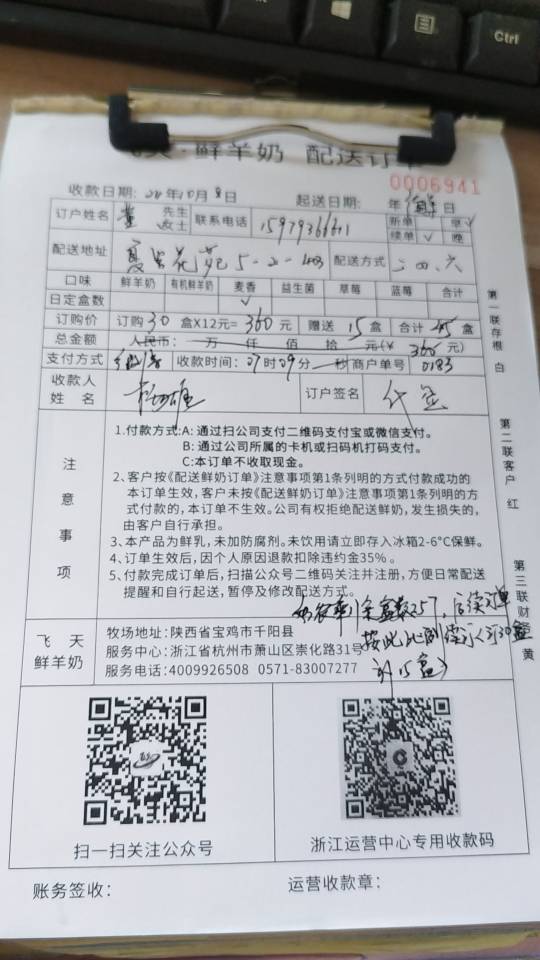 Ctrl
鲜羊奶 配送订单
0006941
收款日期: 年10月8日 起送日期: 年 日
订户姓名 董 先生 女士 联系电话 新单 续单 √ 早 √ 晚
配送地址 夏宫花苑5-2- 配送方式 二、四、六
口味 鲜羊奶 有机鲜羊奶 麦香 益生菌 草莓 蓝莓 合计
日定盒数 √
订购价 订购30盒X12元=360元 赠送15盒 合计45盒
总金额 人民币: 万 仟 佰 拾 元(¥ 360元)
支付方式 收款时间:07时09分 秒 商户单号 0183
收款人姓名 订户签名
注意事项
1.付款方式:A: 通过扫公司支付二维码支付宝或微信支付。
B: 通过公司所属的卡机或扫码机打码支付。
C:本订单不收取现金。
2、客户按《配送鲜奶订单》注意事项第1条列明的方式付款成功的
本订单生效，客户未按《配送鲜奶订单》注意事项第1条列明的方
式付款的，本订单不生效。公司有权拒绝配送鲜奶，发生损失的，
由客户自行承担。
3、本产品为鲜乳，未加防腐剂。未饮用请立即存入冰箱2-6°C保鲜。
4、订单生效后，因个人原因退款扣除违约金35%。
5、付款完成订单后，扫描公众号二维码关注并注册，方便日常配送
提醒和自行起送，暂停及修改配送方式。
余盒数257，后续订单
按此比例续订(订30盒
15盒)
飞天
鲜羊奶
牧场地址:陕西省宝鸡市千阳县
服务中心:浙江省杭州市萧山区崇化路31号
服务电话:4009926508 0571-83007277
扫一扫关注公众号
浙江运营中心专用收款码
账务签收:
运营收款章:
第一联存根 白
第二联客户 红
第三联财务 黄